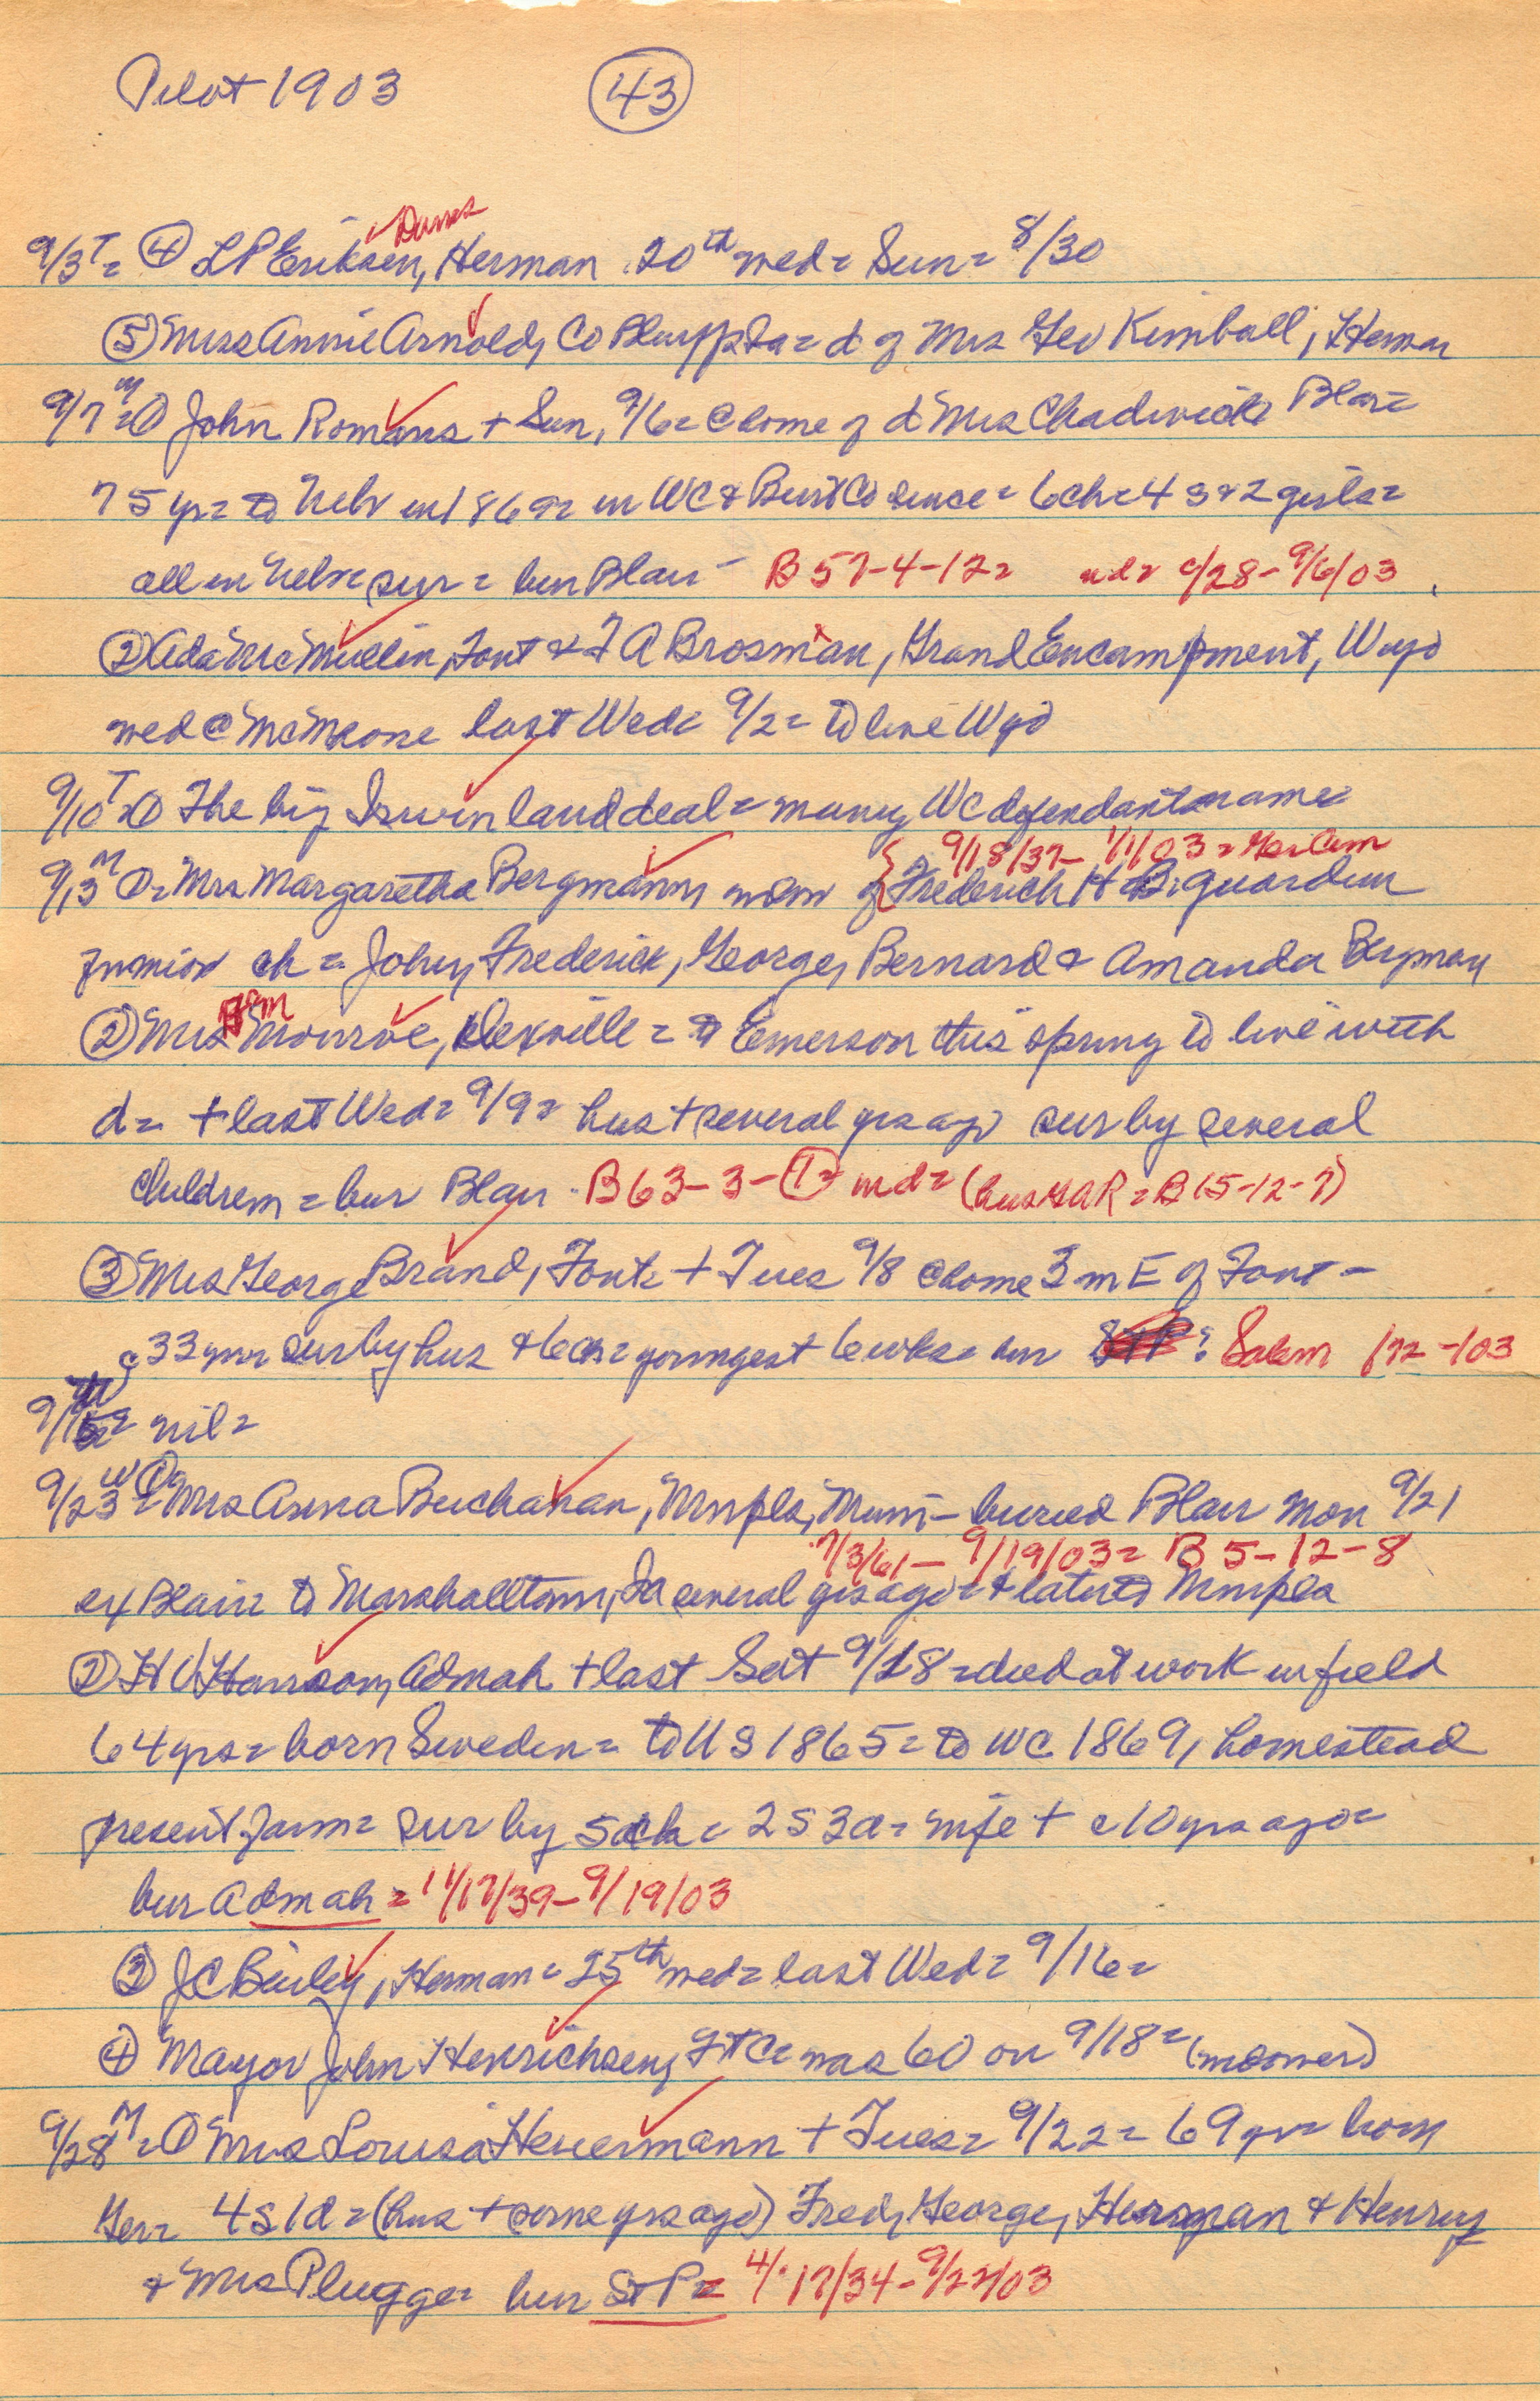 Pilot 1903 43
Danes
9/3 T = ④ L P Eriksen, Herman 20th wed = Sun = 8/30
⑤ Miss Annie Arnold, Co Bluffs Ia = d of Mrs Geo Kimball, Herman
9/7 M = ① John Romans + Sun, 9/6 = @ home of d Mrs Chadwick Blair =
75 yrs = to Nebr in 1869 = in WC & Burt Co since = 6 ch = 4 s & 2 girls =
all in Nebr sur = bur Blair - B 57-4-12 = nd = c/28 - 9/6/03
② Ada McMullin, Font & F A Brosman, Grand Encampment, Wyo
wed @ last Wed = 9/2 = to live Wyo
9/10 T = ① The big Irwin land deal = many WC defendants names
9/18/37 - 1/1/03 = Ger Cem
9/13 M ① = Mrs Margaretha Bergmann, wdw of Frederich H B, guardian
f minor ch = John, Frederick, George, Bernard & Amanda Bergman
② Mrs Monroe, Dexville = to Emerson this spring to live with
d = + last Wed = 9/9 = hus + several yrs ago sur by several
children = bur Blair - B 63-3-① = md = (hus GAR = B 15-12-7)
③ Mrs George Brand, Font = + Tues 9/8 @ home 3 m E of Font -
c 33 yrs sur by hus & 6 ch = youngest 6 wks = bur St P ? Salem 172-103
= nil =
9/23 W = ① Mrs Anna Buchanan, Mnpls, Minn - buried Blair Mon 9/21
7/3/61 - 9/19/03 = B 5-12-8
ex Blair = to Marshalltown, Ia several yrs ago = & later to Mnpls
② H C Hanson, Admah + last Sat 9/18 = died at work in field
64 yrs = born Sweden = to US 1865 = to WC 1869, homestead
present farm = sur by 5 ch = 2 s 3 d = wife + c 10 yrs ago =
bur Admah = 11/17/39 - 9/19/03
③ J C Bailey, Herman = 25th wed = last Wed = 9/16 =
④ Mayor John Henrichsen, Ft C = was 60 on 9/18 =
9/28 M = ① Mrs Louisa Heuermann + Tues = 9/22 = 69 yrs = born
Ger = 4 s 1 d = (hus + some yrs ago) Fred, George, Herman & Henry
& Mrs Plugge = bur St P = 4/17/34 - 9/22/03